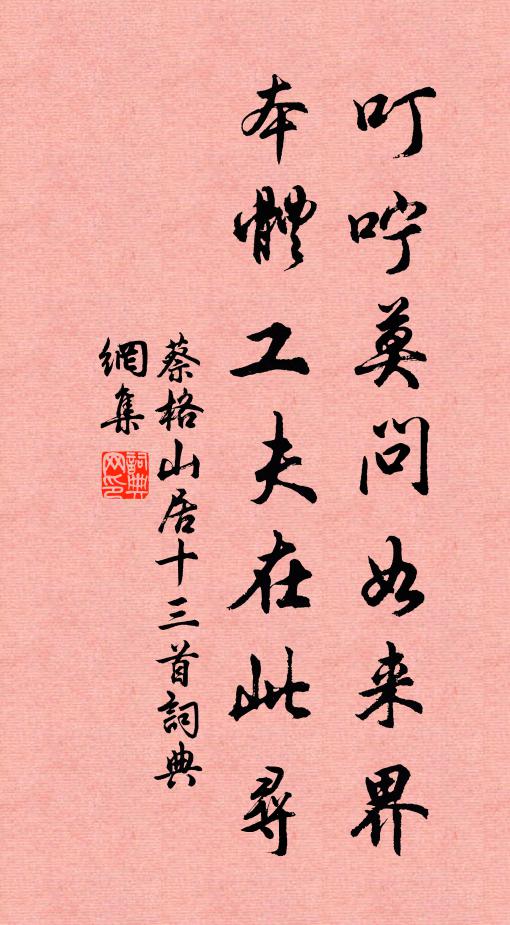 叮咛莫問如来界
本體工夫在此尋
蔡格山居十三首詞典
網集
詞典网印